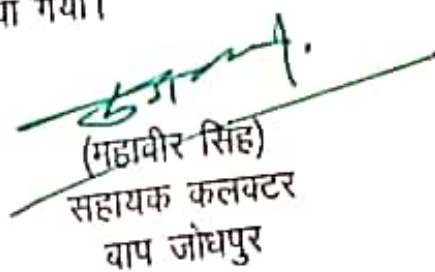 गया।
(महावीर सिंह)
सहायक कलक्टर
बाप जोधपुर